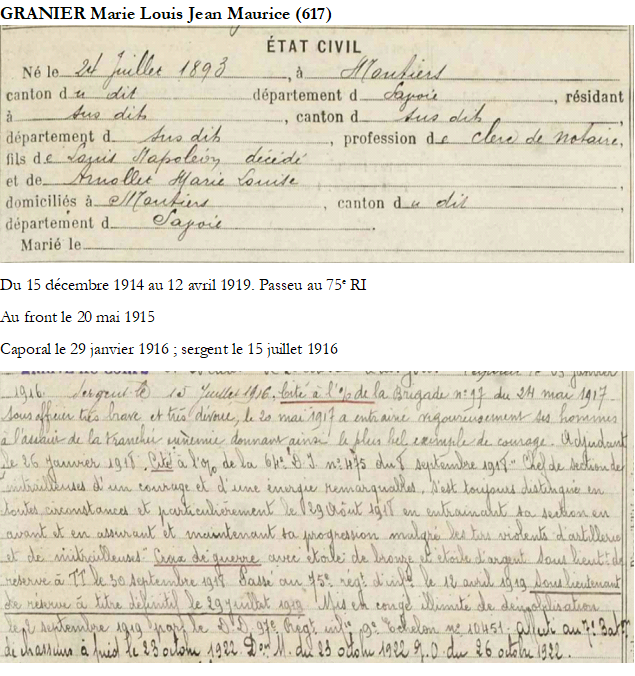 GRANIER Marie Louis Jean Maurice (617)
ÉTAT CIVIL
Né le 24 Juillet 1893, à Moutiers
canton du dit département d Savoie, résidant
à sus dit, canton d sus dit,
département d sus dit, profession de clerc de notaire,
fils de Louis Napoléon décédé
et de Arnollet Marie Louise,
domiciliés à Moutiers, canton du dit,
département d Savoie.
Marié le
Du 15 décembre 1914 au 12 avril 1919. Passeu au 75e RI
Au front le 20 mai 1915
Caporal le 29 janvier 1916 ; sergent le 15 juillet 1916
janvier
1916. Sergent le 15 Juillet 1916. Cité à l'o/o de la Brigade n° 97 du 24 mai 1917
Sous officier très brave et très dévoué, le 20 mai 1917 a entrainé vigoureusement ses hommes
à l'assaut de la tranchée ennemie donnant ainsi le plus bel exemple de courage. Adjudant
le 26 Janvier 1918. Cité à l'o/o de la 64e D.I. n° 495 du 8 septembre 1918 "Chef de section de
mitrailleuses d'un courage et d'une énergie remarquables, s'est toujours distingué en
toutes circonstances et particulièrement le 29 Août 1918 en entrainant sa section en
avant et en assurant et maintenant sa progression malgré les tirs violents d'artillerie
et de mitrailleuses" Croix de guerre avec étoile de bronze et étoile d'argent Sous lieutt de
réserve à TT le 30 septembre 1918 Passé au 75e régt d'infie le 12 avril 1919 Sous lieutenant
de réserve à titre définitif le 29 juillet 1919 Mis en congé illimité de démobilisation
le 2 septembre 1919 par le D.D. 97e Régt infie 9e Echelon n° 10451. Affecté au 7e Baton
de chasseurs à pied le 23 octobre 1922. Don M. du 23 octobre 1922 J.O. du 26 octobre 1922.